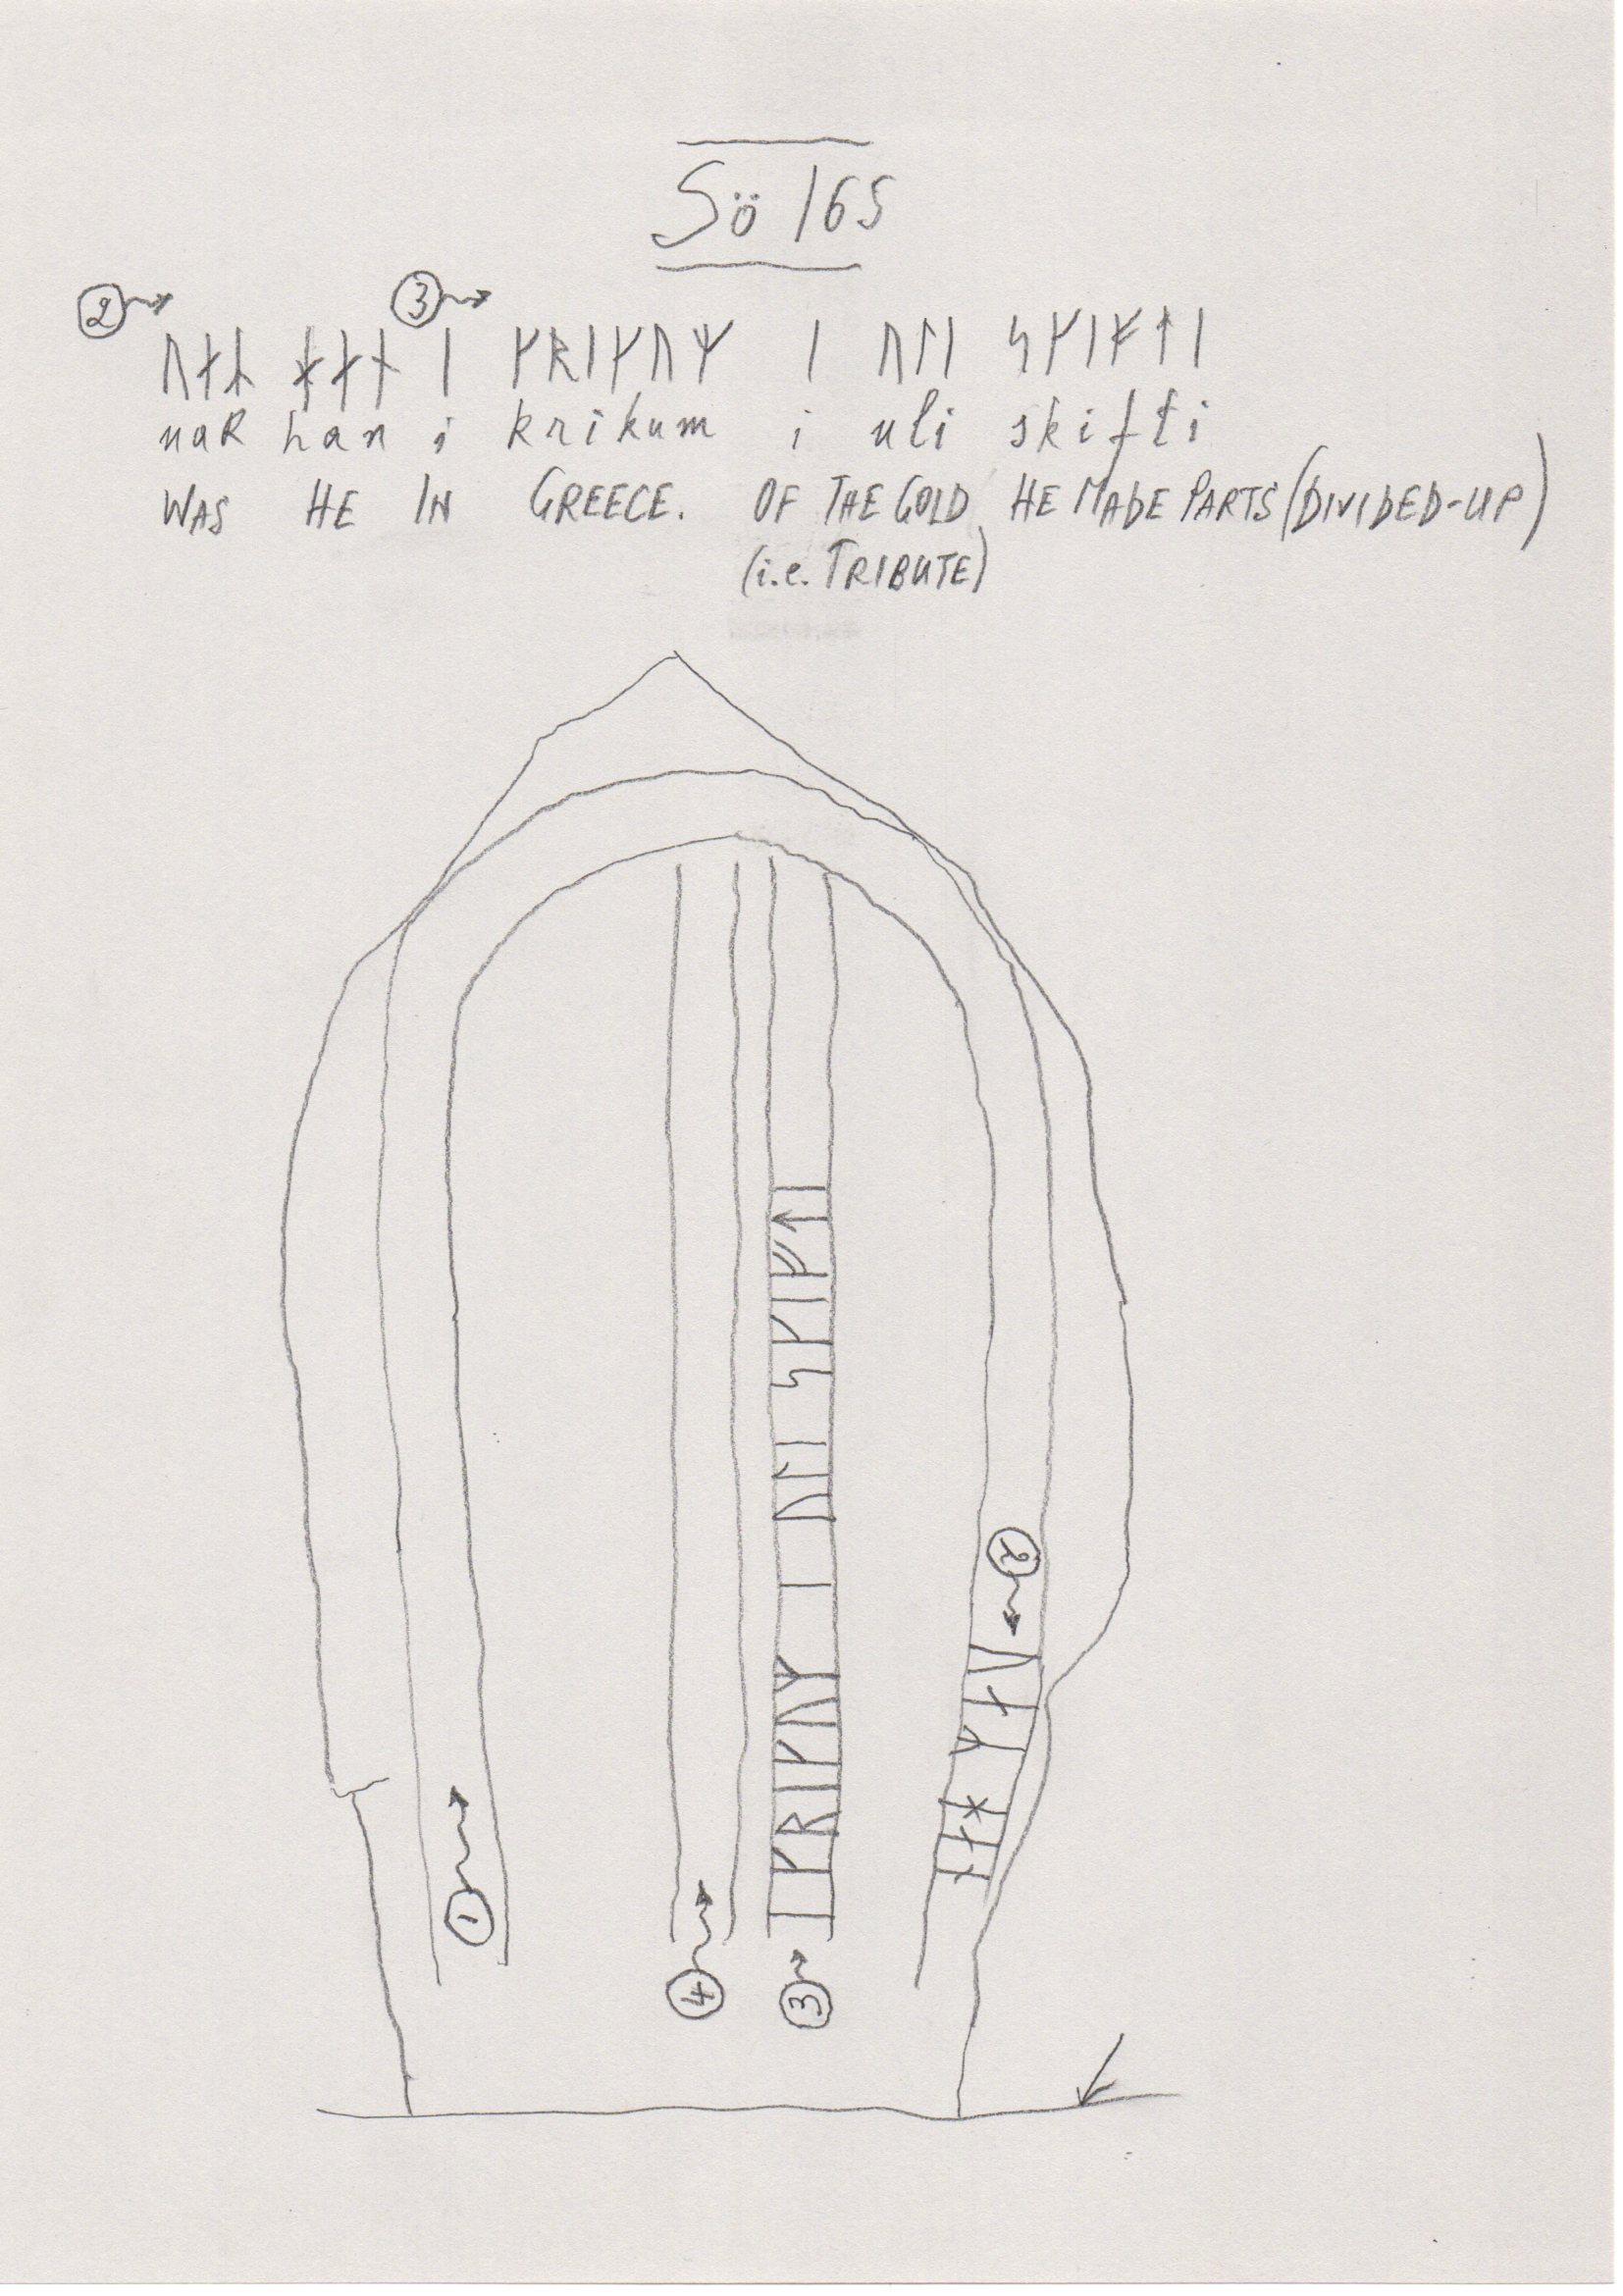 Sö 165
② ③
ᚢᛅᛦ ᚼᛅᚾ ᛁ ᚴᚱᛁᚴᚢᛘ ᛁ ᚢᛚᛁ ᛋᚴᛁᚠᛏᛁ
uaR han i krikum i uli skifti
WAS HE IN GREECE. OF THE GOLD HE MADE PARTS (DIVIDED-UP)
(i.e. TRIBUTE)
①
② ᚢᛅᛦ ᚼᛅᚾ
③ ᛁ ᚴᚱᛁᚴᚢᛘ ᛁ ᚢᛚᛁ ᛋᚴᛁᚠᛏᛁ
④